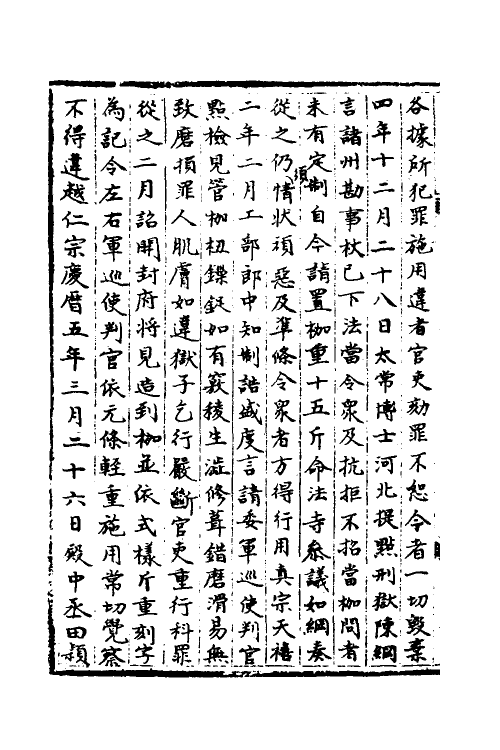 各據所犯罪施用違者官吏劾罪不恕令者一切毀棄
四年十二月二十八日太常博士河北提點刑獄陳綱
言諸州勘事杖已下法當令衆及抗拒不招當枷問者
未有定制自今請置枷重十五斤命法寺叅議如綱奏
從之仍須情狀頑惡及準條令衆者方得行用真宗天禧
二年二月工部郎中知制誥盛度言請委軍巡使判官
點檢見管枷杻鏁釱如有竅稜生澁修葺錯磨滑易無
致磨損罪人肌膚如違獄子乞行嚴斷官吏重行科罪
從之二月詔開封府將見造到枷並依式樣斤重刻字
為記令左右軍巡使判官依元條輕重施用常切覺察
不得違越仁宗慶曆五年三月二十六日殿中丞田頴